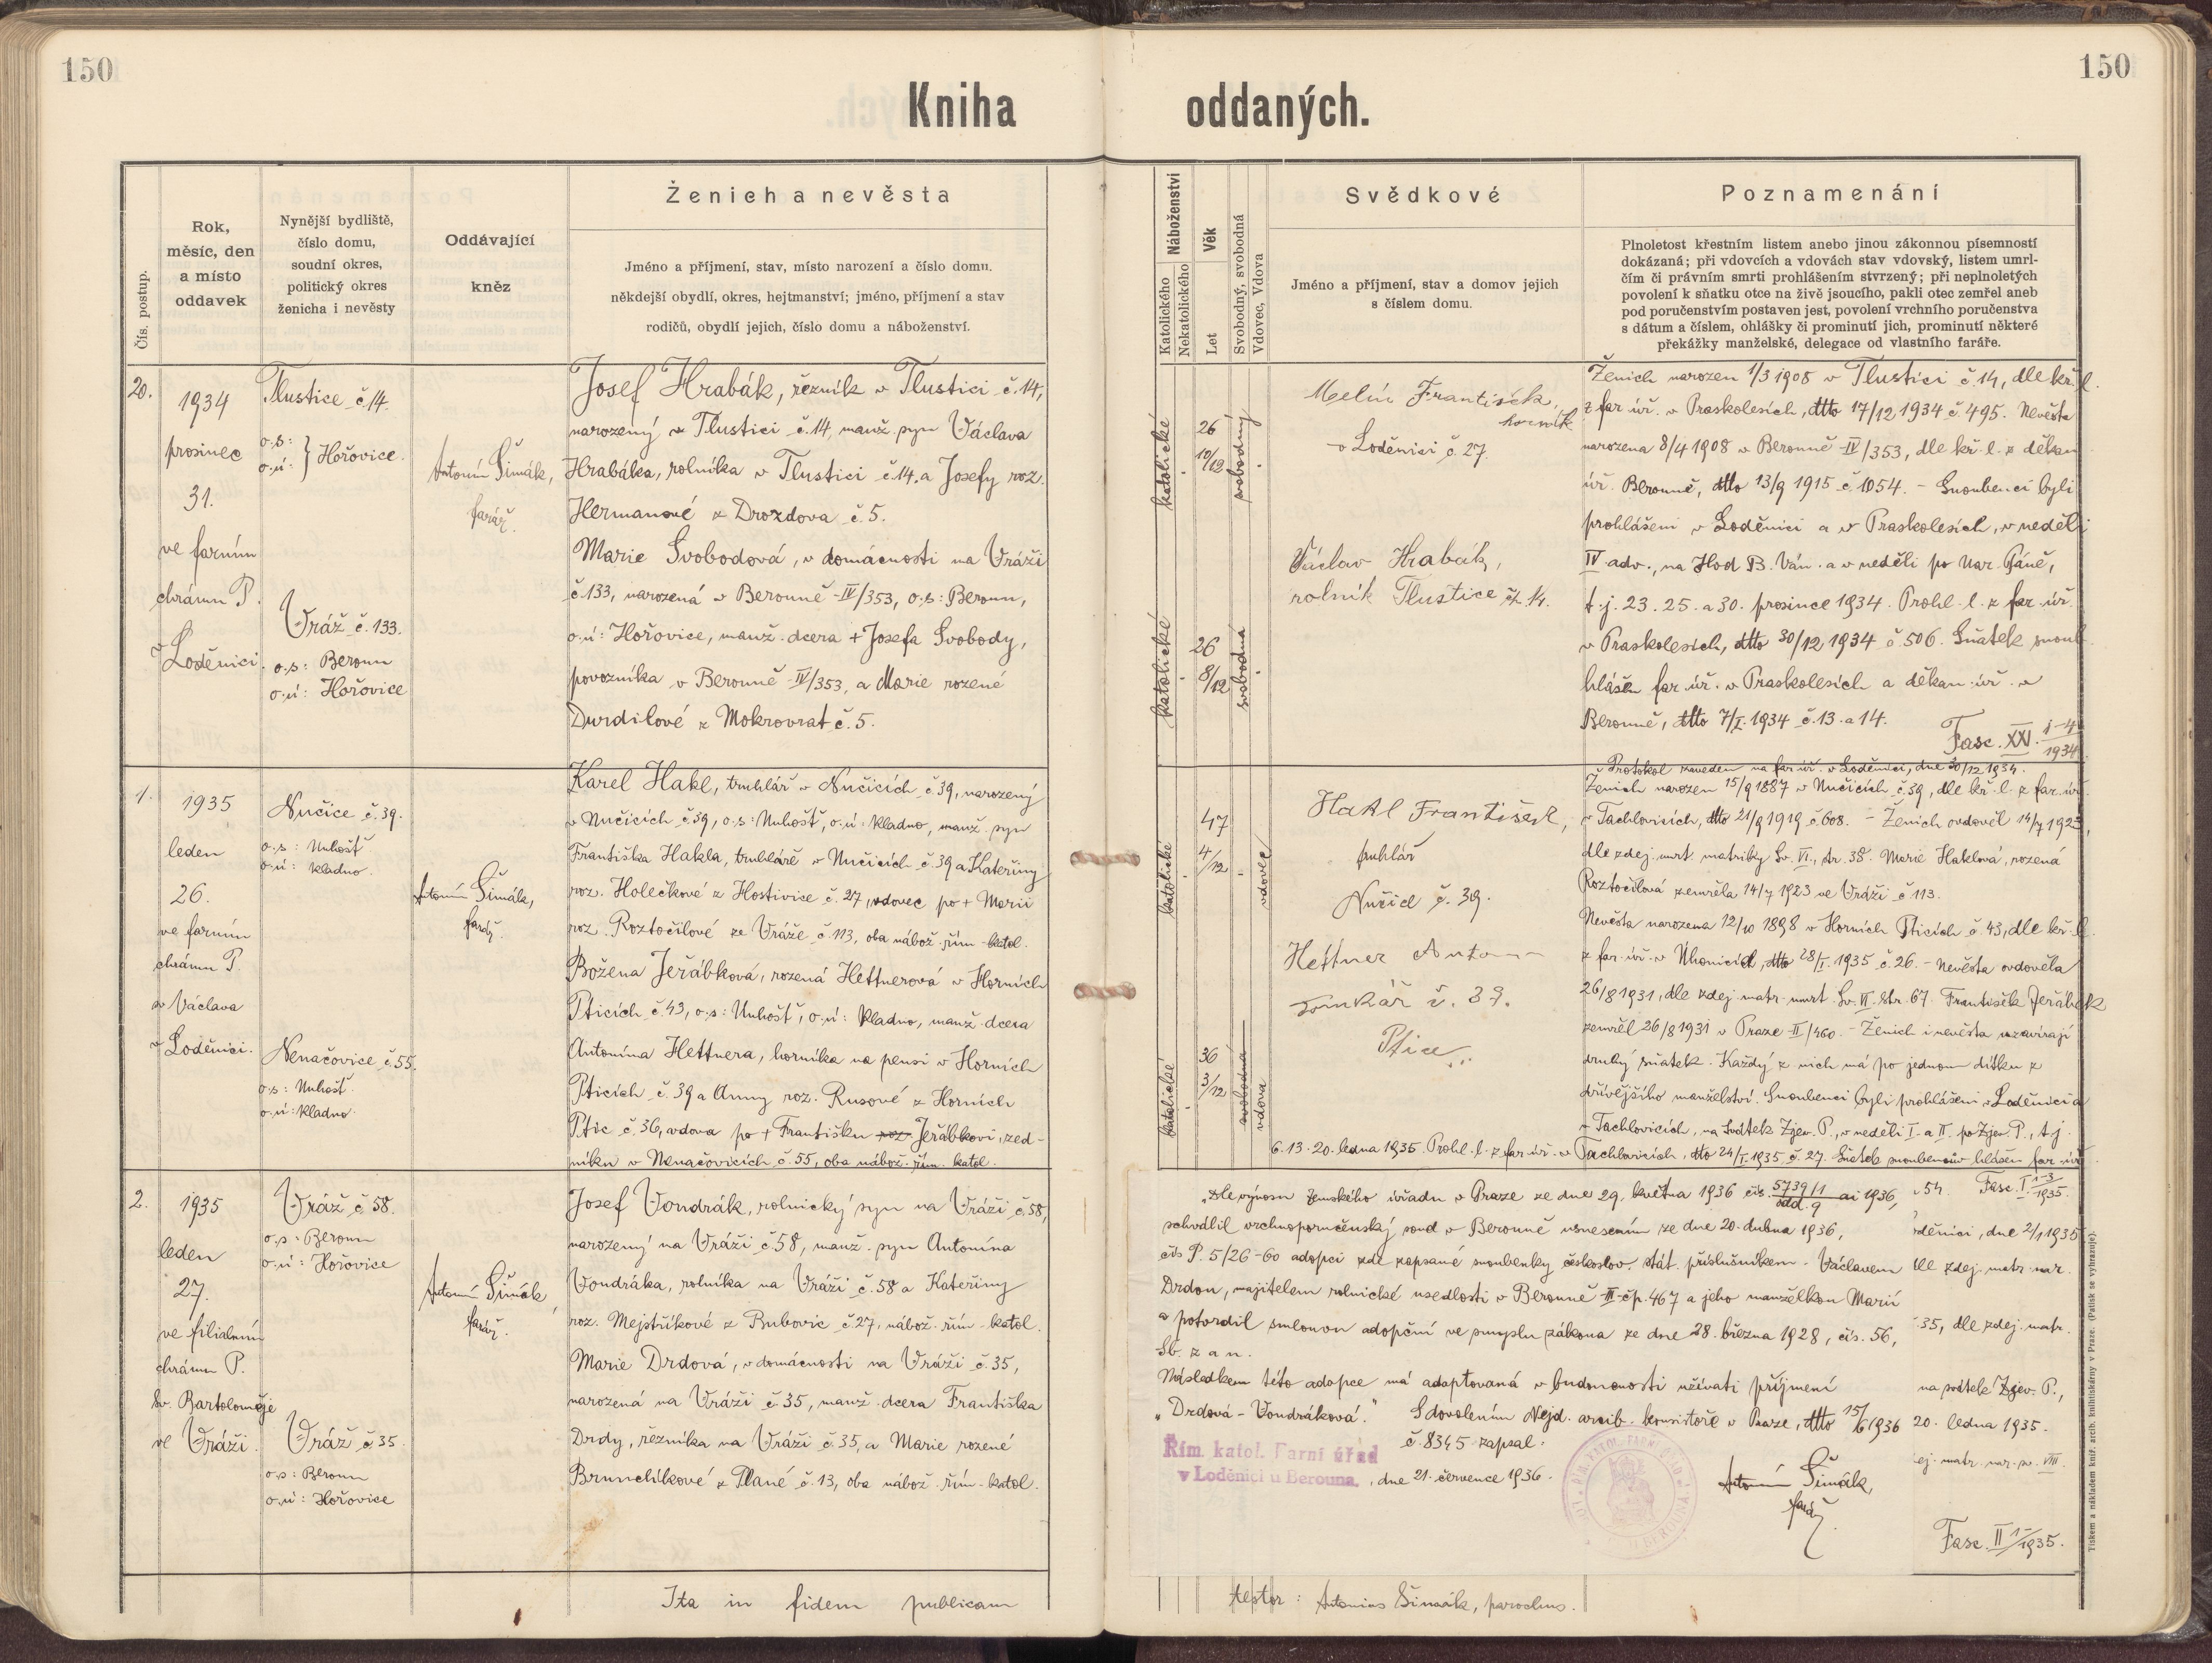 150
150
Kniha oddaných.
Čís. postup.
Rok,
měsíc, den
a místo
oddavek
Nynější bydliště,
číslo domu,
soudní okres,
politický okres
ženicha i nevěsty
Oddávající
kněz
Ženich a nevěsta
Jméno a příjmení, stav, místo narození a číslo domu.
někdejší obydlí, okres, hejtmanství; jméno, příjmení a stav
rodičů, obydlí jejich, číslo domu a náboženství.
Náboženství
Katolického
Nekatolického
Věk
Let
Svobodný, svobodná
Vdovec, Vdova
Svědkové
Jméno a příjmení, stav a domov jejich
s číslem domu.
Poznamenání
Plnoletost křestním listem anebo jinou zákonnou písemností
dokázaná; při vdovcích a vdovách stav vdovský, listem umrl-
čím či právním smrti prohlášením stvrzený; při neplnoletých
povolení k sňatku otce na živě jsoucího, pakli otec zemřel aneb
pod poručenstvím postaven jest, povolení vrchního poručenstva
s dátum a číslem, ohlášky či prominutí jich, prominutí některé
překážky manželské, delegace od vlastního faráře.
20.
1934
prosinec
31.
ve farním
chrámu P.
v Loděnici.
Tlustice č. 14.
o.s:
o.ú: } Hořovice.
Vráž č. 133.
o.s: Beroun
o.ú: Hořovice
Antonín Šimák,
farář.
Josef Hrabák, řezník v Tlustici č. 14,
narozený v Tlustici č. 14, manž. syn Václava
Hrabáka, rolníka v Tlustici č. 14. a Josefy roz.
Hermanové z Drozdova č. 5.
Marie Svobodová, v domácnosti na Vráži
č. 133, narozená v Berouně - IV/353, o.s: Beroun,
o.ú: Hořovice, manž. dcera + Josefa Svobody,
povozníka v Berouně - IV/353, a Marie rozené
Durdilové z Mokrovrat č. 5.
katolické
26
10/12
svobodný
katolické
26
8/12
svobodná
Melín František,
horník
v Loděnici č. 27.
Václav Hrabák,
rolník Tlustice č. 14.
Ženich narozen 1/3 1908 v Tlustici č. 14, dle kř. l.
z far. úř. v Praskolesích, dtto 17/12 1934 č. 495. Nevěsta
narozena 8/4 1908 v Berouně - IV/353, dle kř. l. z děkan.
úř. Berouně, dtto 13/9 1915 č. 1054. - Snoubenci byli
prohlášeni v Loděnici a v Praskolesích, v neděli
IV. adv., na Hod B. Ván. a v neděli po Nar. Páně,
t. j. 23. 25. a 30. prosince 1934. Prohl. l. z far. úř.
v Praskolesích, dtto 30/12 1934 č. 506. Sňatek snoub.
hlášen far. úř. v Praskolesích a děkan. úř. v
Berouně, dtto 7/I. 1934 č. 13. a 14.
Fasc. XXI. 1-4/1934
Protokol zaveden na far. úř. v Loděnici, dne 30/12 1934.
1.
1935
leden
26.
ve farním
chrámu P.
sv Václava
v Loděnici.
Nučice č. 39.
o.s: Unhošť
o.ú: Kladno.
Nenačovice č. 55.
o.s: Unhošť.
o.ú: Kladno.
Antonín Šimák,
farář.
Karel Hakl, truhlář v Nučicích č. 39, narozený
v Nučicích č. 39, o.s: Unhošť, o.ú: Kladno, manž. syn
Františka Hakla, truhláře v Nučicích č. 39 a Kateřiny
roz. Holečkové z Hostivice č. 27, vdovec po + Marii
roz. Roztočilové ze Vráže č. 113, oba nábož. řím.-katol.
Božena Jeřábková, rozená Hettnerová v Horních
Pticích č. 43, o.s: Unhošť, o.ú: Kladno, manž. dcera
Antonína Hettnera, horníka na pensi v Horních
Pticích č. 39 a Anny roz. Rusové z Horních
Ptic č. 36, vdova po + Františku roz. Jeřábkovi, zed-
níku v Nenačovicích č. 55, oba nábož. řím. katol.
katolické
47
4/12
vdovec
katolické
36
3/12
svobodná
vdova
Hakl František,
truhlář
Nučice č. 39.
Hettner Anton
č. 39.
Ptice
Ženich narozen 15/9 1887 v Nučicích č. 39, dle kř. l. z far. úř.
v Tachlovicích, dtto 21/9 1919 č. 608. - Ženich ovdověl 14/7 1923,
dle zdej. umrt. matriky Sv. VI., str. 38. Marie Haklová, rozená
Roztočilová zemřela 14/7 1923 ve Vráži č. 113.
Nevěsta narozena 12/10 1898 v Horních Pticích č. 43, dle kř. l.
z far. úř. v Úhonicích, dtto 28/I. 1935 č. 26. - Nevěsta ovdověla
26/8 1931, dle zdej. matr. umrt. Sv. VI. Str. 67. František Jeřábek
zemřel 26/8 1931 v Praze II/460. - Ženich i nevěsta uzavírají
druhý sňatek. Každý z nich má po jednom dítku z
dřívějšího manželství. Snoubenci byli prohlášeni v Loděnici a
v Tachlovicích, na Svátek Zjev. P., v neděli I. a II. po Zjev. P., t.j.
6. 13. 20. ledna 1935. Prohl. l. z far. úř. v Tachlovicích, dtto 24/I. 1935 č. 27. Sňatek snoubenců hlášen far. úř.
2.
1935
leden
27.
ve filialním
chrámu P.
Sv. Bartoloměje
ve Vráži.
Vráž č. 58.
o.s: Beroun
o.ú: Hořovice
Vráž č. 35
o.s: Beroun
o.ú: Hořovice
Antonín Šimák,
farář.
Josef Vondrák, rolnický syn na Vráži č. 58,
narozený na Vráži č. 58, manž. syn Antonína
Vondráka, rolníka na Vráži č. 58 a Kateřiny
roz. Mejstříkové z Bubovic č. 27, nábož. řím.-katol.
Marie Drdová, v domácnosti na Vráži č. 35,
narozená na Vráži č. 35, manž. dcera Františka
Drdy, řezníka na Vráži č. 35, a Marie rozené
Brunclíkové z Plané č. 13, oba nábož. řím.-katol.
„Dle výnosu Zemského úřadu v Praze ze dne 29. května 1936 čís. 5739/1 odd. 9 ai 1936,
schválil vrchnoporučenský soud v Berouně usnesením ze dne 20. dubna 1936,
čís P. 5/26-60 adopci zde zapsané snoubenky českoslov. stát. příslušníkem. Václavem
Drdou, majitelem rolnické usedlosti v Berouně - III čp. 467 a jeho manželkou Marií
a potvrdil smlouvu adopční ve smyslu zákona ze dne 28. března 1928, čís. 56,
Sb. z a n.
Následkem této adopce má adoptovaná v budoucnosti užívati příjmení
„Drdová - Vondráková." S dovolením Nejd. arcib. konsistoře v Praze, dtto 15/6 1936
č. 8345 zapsal:
Řím. katol. Farní úřad
v Loděnici u Berouna, dne 21. července 1936.
Antonín Šimák,
farář.
54. Fasc. I. 1-3/1935.
děnici, dne 2/1 1935
dle zdej. matr. nar.
35, dle zdej. matr.
na svátek Zjev. P.,
20. ledna 1935.
ej. matr. nar. sv. VIII.
Fasc. II 1-/1935.
Tiskem a nákladem kníž. arcib. knihtiskárny v Praze. (Patisk se vyhrazuje).
Ita in fidem publicam
testor: Antonius Šimák, parochus.